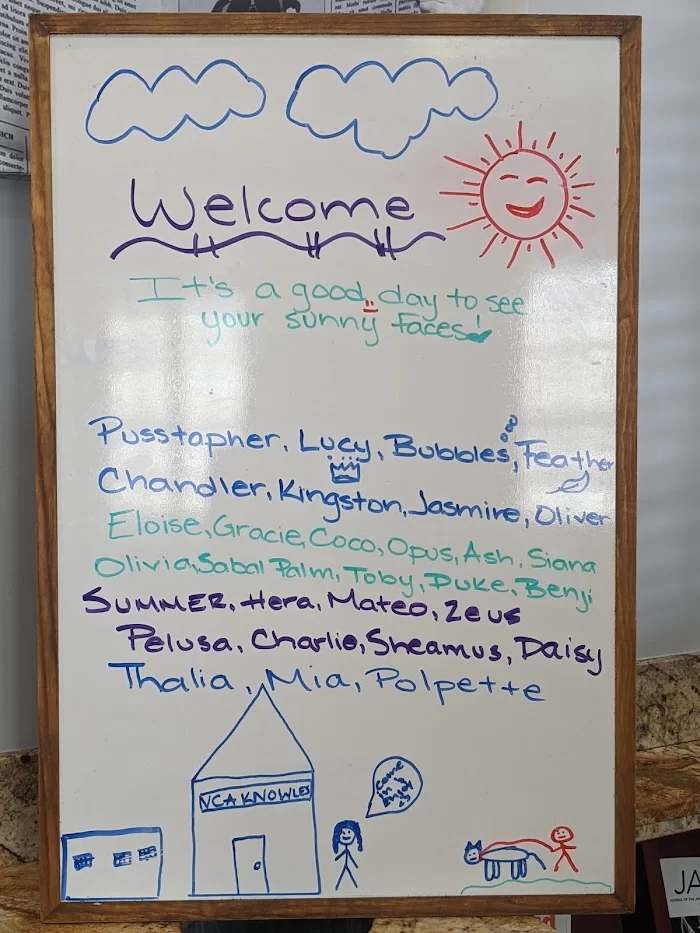 Welcome
It's a good day to see
your sunny faces!
Pusstapher, Lucy, Bubbles, Feather
Chandler, Kingston, Jasmire, Oliver
Eloise, Gracie, Coco, Opus, Ash, Siana
Olivia, Sabal Palm, Toby, Duke, Benji
SUMMER, Hera, Mateo, Zeus
Pelusa, Charlie, Sheamus, Daisy
Thalia, Mia, Polpette
VCA KNOWLES
come
in
JA